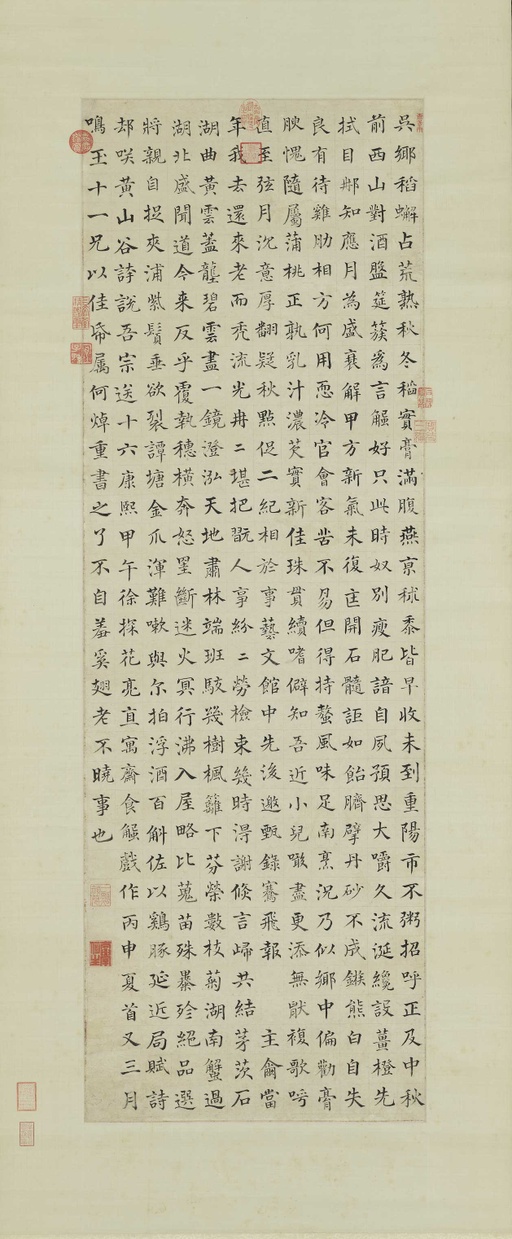 吳鄉稻蠏占荒熟秋冬稻實膏滿腹燕京秫黍皆早收未到重陽市不粥招呼正及中秋
前西山對酒盤筵簇為言蠏好只此時奴別瘦肥諳自夙預思大嚼久流涎纔設薑橙先
拭目那知應月為盛衰解甲方新氣未復匡開石髓詎如飴臍擘丹砂不成鏃熊白自失
良有待雞肋相方何用恧冷官會客苦不易但得持螯風味足南烹況乃似鄉中偏勸膏
腴愧隨屬蒲桃正孰乳汁濃芡實新佳珠貫續嗜僻知吾近小兒噉盡更添無猒複歌呺
直至弦月沈意厚翻疑秋點促二紀相於事藝文館中先後邀甄錄騫飛報主侖當
年我去還來老而禿流光冉二堪把翫人事紛二勞檢束幾時得謝倏言歸共結茅茨石
湖曲黃雲蓋壟碧雲盡一鏡澄泓天地肅林端班駮幾樹楓籬下芬榮數枝菊湖南蟹過
湖北盛聞道今來反乎覆執穗橫奔怒星斷迷火冥行沸入屋略比蒐苗殊暴殄絕品選
將親自捉夾浦紫鬚垂欲裂譚塘金爪渾難嗽與尒拍浮酒百斛佐以鷄豚延近局賦詩
却咲黃山谷詩說吾宗送十六康熙甲午徐探花亮直寓齋食蠏戲作丙申夏首又三月
鳴玉十一兄以佳帋属何焯重書之了不自羞奚翅老不曉事也